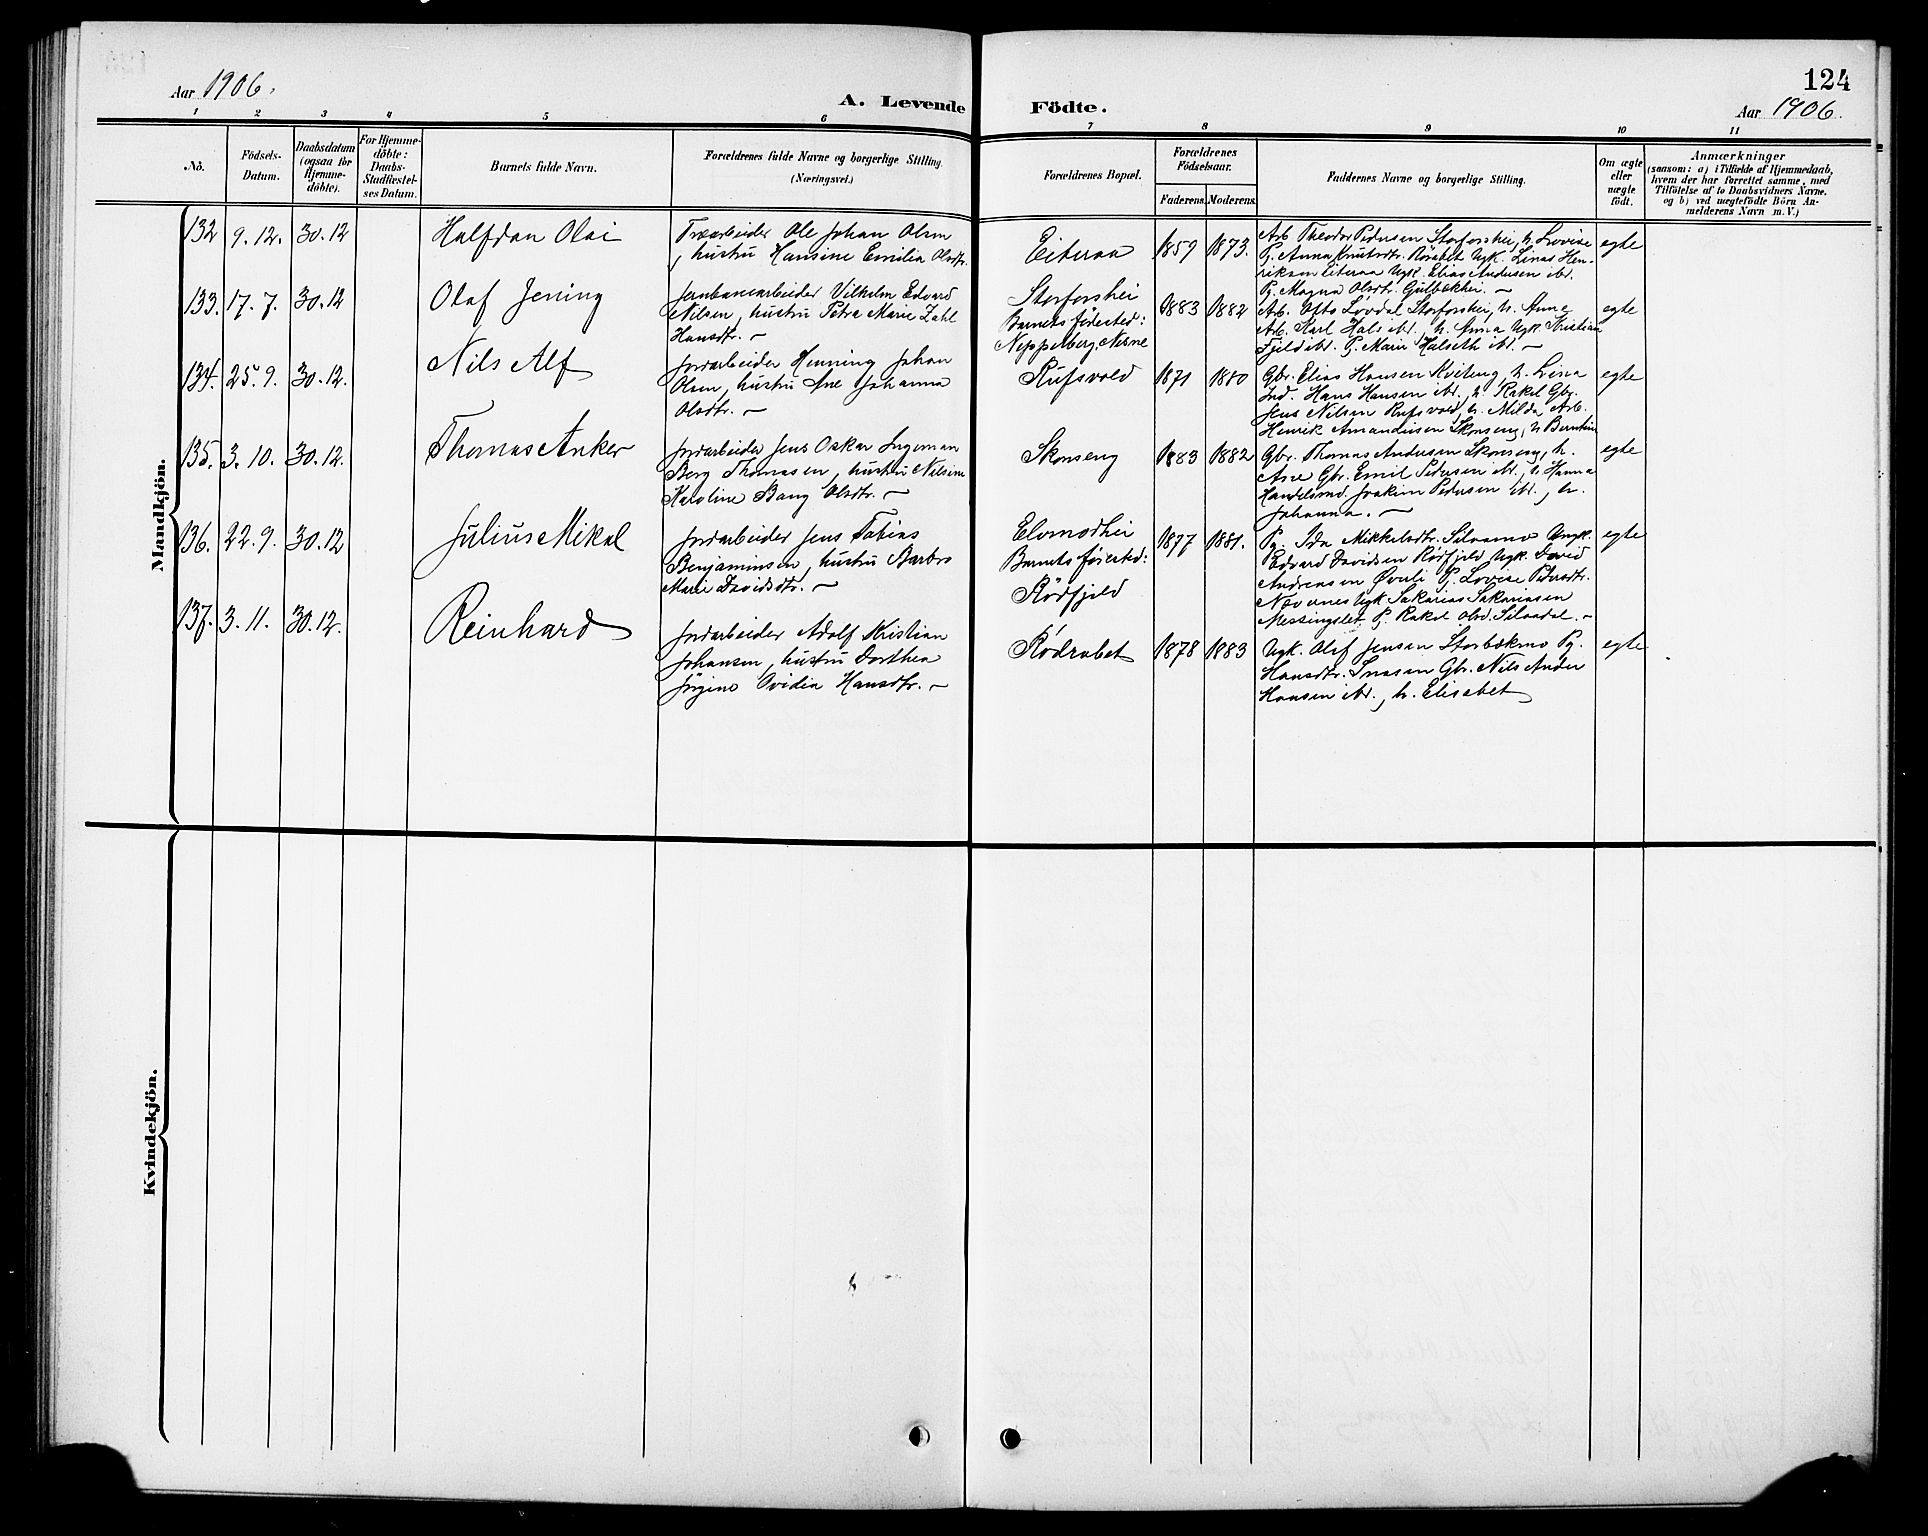 124
Aar 1906.
A. Levende
Födte.
Aar 1906.
1 2 3 4 5 6 7 8 9 10 11
No.
Födsels-
Datum.
Daabsdatum
(ogsaa for
Hjemme-
döbte).
For Hjemme-
döbte:
Daabs-
Stadfæstel-
ses Datum.
Barnets fulde Navn.
Forældrenes fulde Navne og borgerlige Stilling.
(Næringsvei.)
Forældrenes Bopæl.
Forældrenes
Födselsaar.
Faderens. Moderens.
Faddernes Navne og borgerlige Stilling.
Om ægte
eller
uægte
födt.
Anmærkninger
(saasom: a) i Tilfælde af Hjemmedaab,
hvem der har forrettet samme, med
Tilföielse af to Daabsvidners Navne,
og b) ved uægtefödte Börn An-
melderens Navn m. V.)
Mandkjön.
132 9.12. 30.12 Halfdan Olai
Træarbeider Ole Johan Olsen
, hustru Hansine Emilia Olsdtr.
Eiteraa 1859 1873.
Arb. Theodor Pedersen Storforshei, h. Lovise
Pg. Anna Knutsdtr. Røvabet Ugk. Linas Hen-
riksen Eiteraa Ugk. Elias Andersen ibd.
Pg. Magna Olsdtr. Gulbækhei. –
egte
133. 17.7. 30.12 Olaf Jening
Jernbanearbeider Vilhelm Edvard
Nilsen, hustru Petra Marie Zahl
Hansdtr. –
Storforshei
Barnets fødested:
Nepperberg, Nesne
1883 1882
Arb. Otto Løvdal Storforshei, h. Anna
Arb. Karl Hals ibd., h. Anna Ugk. Kristian
Fjeld ibd. Pg. Marie Halseth ibd. –
egte
134. 25.9. 30.12. Nils Alf
Jordarbeider Henning Johan
Olsen, hustru Ane Johanna
Olsdtr. –
Rufsvold 1871 1880
Gbr. Elias Hansen Kviteng, h. Lina
Ind. Hans Hansen ibd., h. Rakel Gbr.
Jens Nilsen Rufsvold, h. Milda Arb.
Henrik Amandusen Skonseng, h. Berntine
egte
135. 3.10. 30.12. Thomas Anker
Jordarbeider Jens Oskar Ingeman
Berg Thomassen, hustru Nilsine
Karoline Bang Olsdtr. –
Skonseng 1883 1882
Gbr. Thomas Andersen Skonseng, h.
Ane Gbr. Emil Pedersen ibd., h. Hanna
Handelsmd. Joakim Pedersen ibd., h.
Johanna. –
egte
136. 22.9. 30.12 Julius Mikal
Jordarbeider Jens Tobias
Benjaminsen, hustru Barbro
Marie Davidsdtr. –
Elvmodhei
Barnets føsested:
Rødfjeld
1877 1881.
Pg. Ida Mikkelsdtr. Silvamo Ungk.
Edvard Davidsen Rødfjeld Ugk. David
Andreasen Øvrli Pg. Lovise Pedersdtr.
Nævernes Ugk. Sakarias Sakariassen
Messingslet Pg. Rakel Olsd. Silaadal. –
egte
137. 3.11. 30.12. Reinhard
Jordarbeider Adolf Kristian
Johansen, hustru Dorthea
Jørgine Ovidia Hansdtr. –
Rödrabet 1878 1883
Ugk. Olef Jensen Storbækmo Pg.
Hansdtr. Snasen Gbr. Nils Ander
Hansen ibd., h. Elisabet
egte
Kvindekjön.